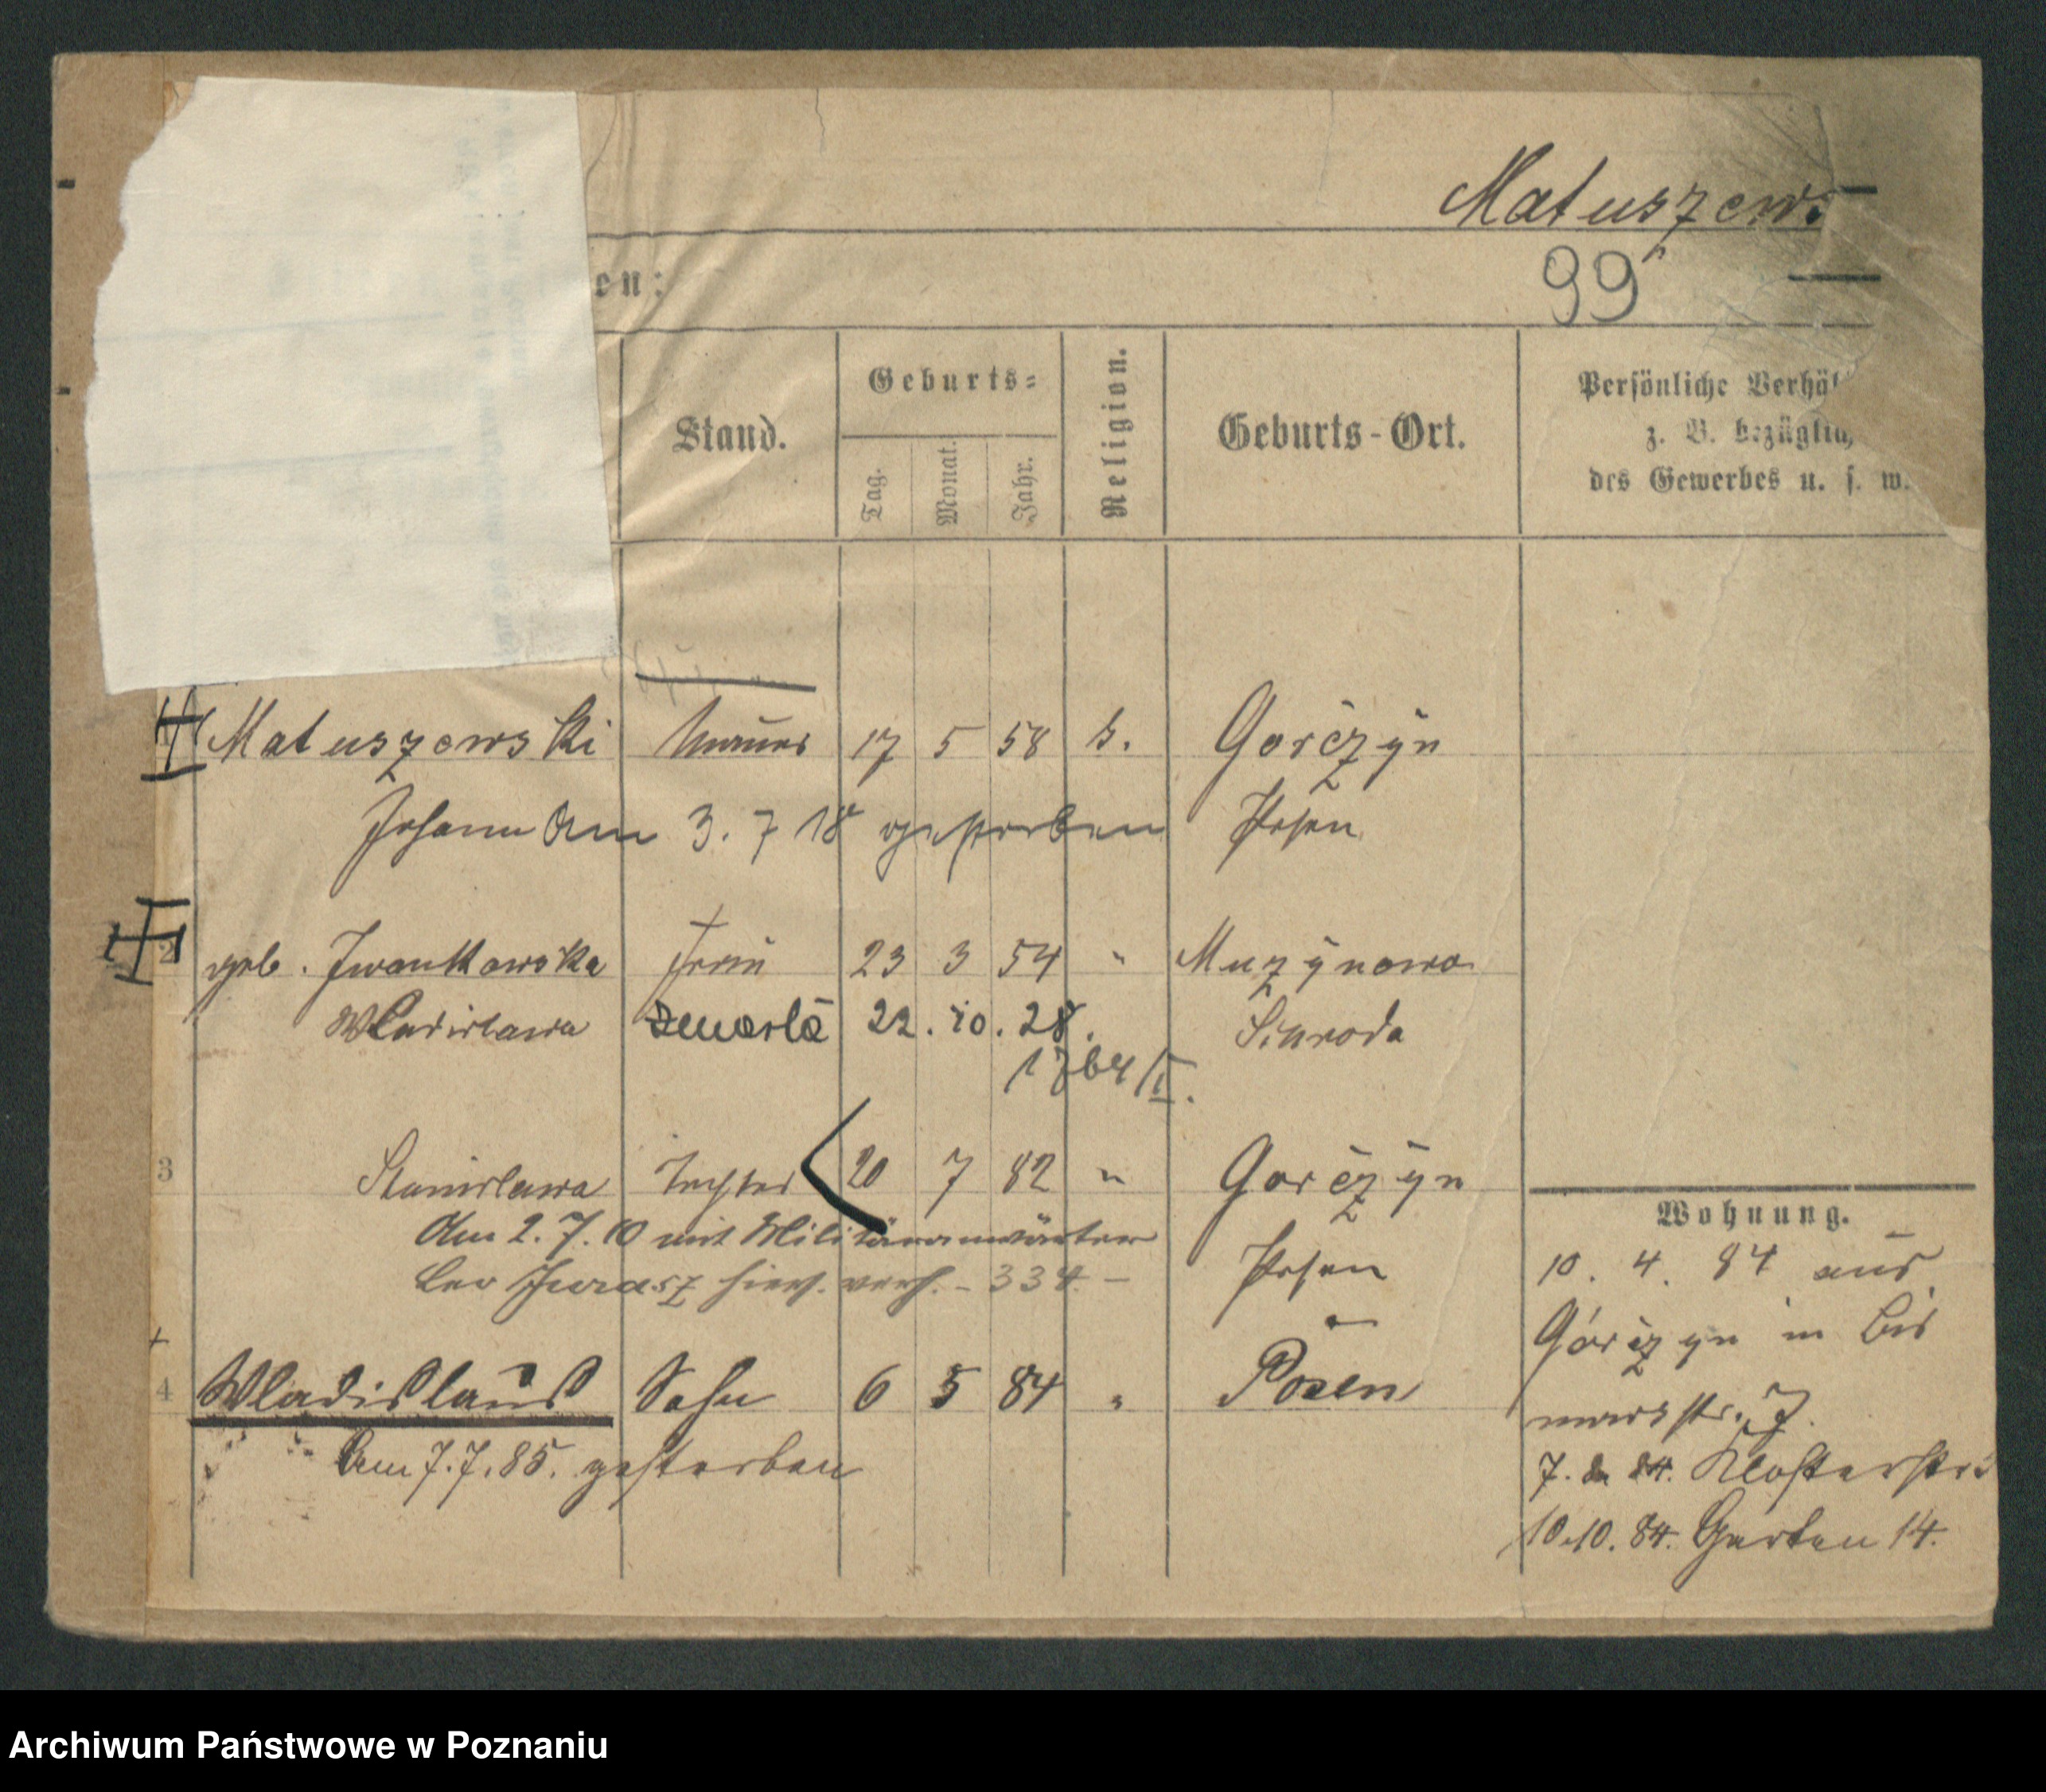 Matuszews
99
en:
Stand.
Geburts=
Tag.
Monat.
Jahr.
Religion.
Geburts-Ort.
Persönliche Verhäl
z. B. bezüglich
des Gewerbes u. s. w.
Matuszewski Maurer 17 5 58 k. Gorčzyn
Johann Am 3. 7 18 gestorben Posen
2 geb. Iwankowska Frau 23 3 54 " Muzynowo
Wladislawa zmarła 22. 10. 28. Schroda
1764/II.
3 Stanislawa Tochter 20 7 82 " Gorčzyn
Am 2. 7. 10 mit Militäranwärter Posen
Leo Jurasz hier verh. - 334 -
4 Wladislaus Sohn 6 5 84 " Posen
Am 7. 7. 85. gestorben
Wohnung.
10. 4. 84 aus
Górczyn in Bis
marckstr. 7.
7. 84. Klosterstr.
10.10. 84. Garten 14.
Archiwum Państwowe w Poznaniu